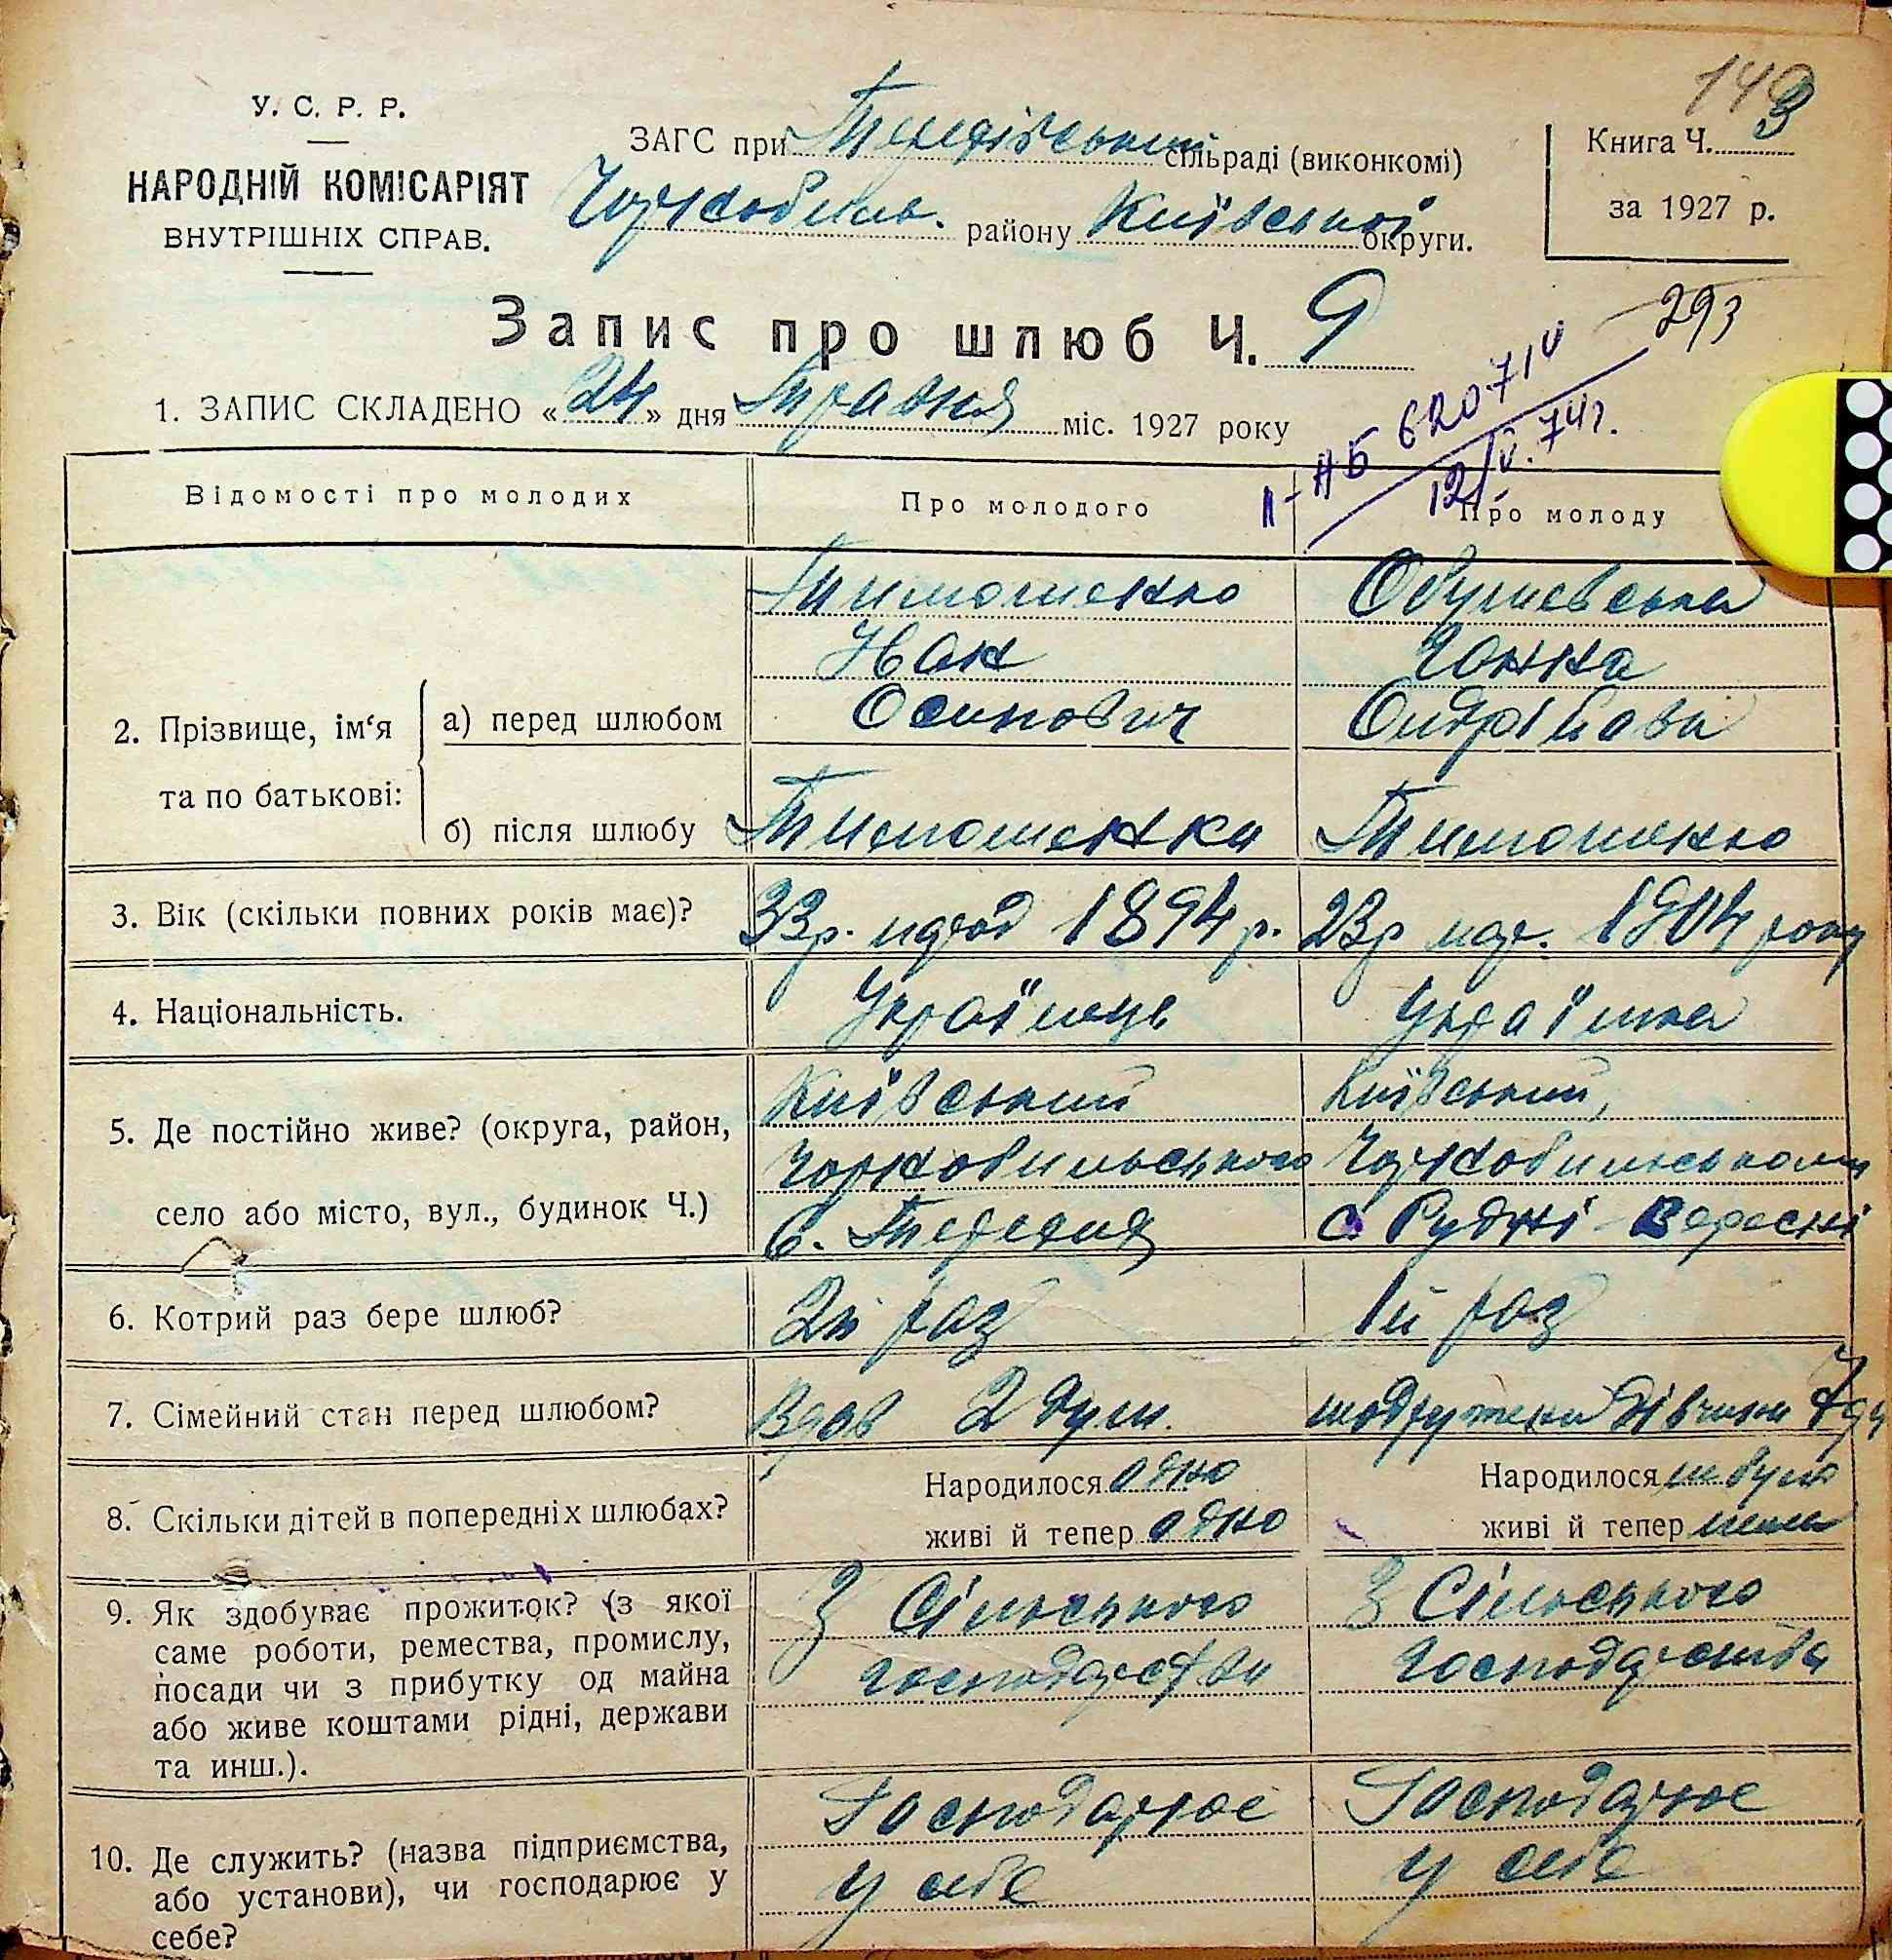 143
У. С. Р. Р.
НАРОДНІЙ КОМІСАРІЯТ
ВНУТРІШНІХ СПРАВ.
ЗАГС при сільраді (виконкомі)
Чорнобиль. району Київської округи.
Книга Ч. 3
за 1927 р.
Запис про шлюб Ч. 9
293
1. ЗАПИС СКЛАДЕНО «24» дня Травня міс. 1927 року
II-АБ 620710
12/V.74г.
Відомості про молодих
Про молодого
Про молоду
2. Прізвище, ім‘я та по батькові:
а) перед шлюбом
Тимошенко
Осипович
Ганна
Андріївна
б) після шлюбу
Тимошенко
Тимошенко
3. Вік (скільки повних років має)?
33р. 1894 р.
23р 1904 року
4. Національність.
Українець
Українка
5. Де постійно живе? (округа, район,
село або місто, вул., будинок Ч.)
Київський
Чорнобильського
С.
Київський,
Чорнобильського
с. Рудні-Вересні
6. Котрий раз бере шлюб?
2й раз
1й раз
7. Сімейний стан перед шлюбом?
Вдов 2 душ.
дівчина
8. Скільки дітей в попередніх шлюбах?
Народилося одно
живі й тепер одно
Народилося не було
живі й тепер нема
9. Як здобуває прожиток? (з якої
саме роботи, ремества, промислу,
посади чи з прибутку од майна
або живе коштами рідні, держави
та инш.).
З Сільського
господарства
З Сільського
господарства
10. Де служить? (назва підприємства,
або установи), чи господарює у
себе?
Господарює
у себе
Господарює
у себе